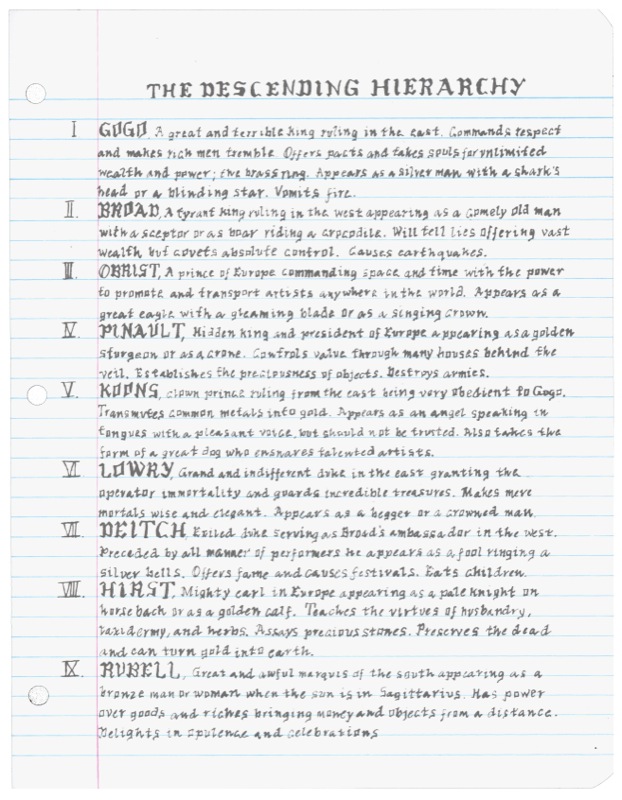 THE DESCENDING HIERARCHY
I GOGO, A great and terrible king ruling in the east. Commands respect
and makes rich men tremble. Offers pacts and takes souls for unlimited
wealth and power; the brass ring. Appears as a silver man with a shark's
head or a blinding star. Vomits fire.
II. BROAD, A tyrant king ruling in the west appearing as a comely old man
with a sceptor or as boar riding a crocodile. Will tell lies offering vast
wealth but covets absolute control. Causes earthquakes.
III. OBRIST, A prince of Europe commanding space and time with the power
to promote and transport artists anywhere in the world. Appears as a
great eagle with a gleaming blade or as a singing crown.
IV. PINAULT, Hidden king and president of Europe appearing as a golden
sturgeon or as a crone. Controls value through many houses behind the
veil. Establishes the preciousness of objects. Destroys armies.
V. KOONS, clown prince ruling from the east being very obedient to Gogo.
Transmutes common metals into gold. Appears as an angel speaking in
tongues with a pleasant voice, but should not be trusted. Also takes the
form of a great dog who ensnares talented artists.
VI LOWRY, Grand and indifferent duke in the east granting the
operator immortality and guards incredible treasures. Makes mere
mortals wise and elegant. Appears as a begger or a crowned man.
VII. DEITCH, Exiled duke serving as Broad's ambassador in the west.
Preceded by all manner of performers he appears as a fool ringing a
silver bells. Offers fame and causes festivals. Eats children.
VIII. HIRST, Mighty earl in Europe appearing as a pale knight on
horse back or as a golden calf. Teaches the virtues of husbandry,
taxidermy, and herbs. Assays precious stones. Preserves the dead
and can turn gold into earth.
IX. RUBELL, Great and awful marquis of the south appearing as a
bronze man or woman when the sun is in Sagittarius. Has power
over goods and riches bringing money and objects from a distance.
Delights in opulence and celebrations